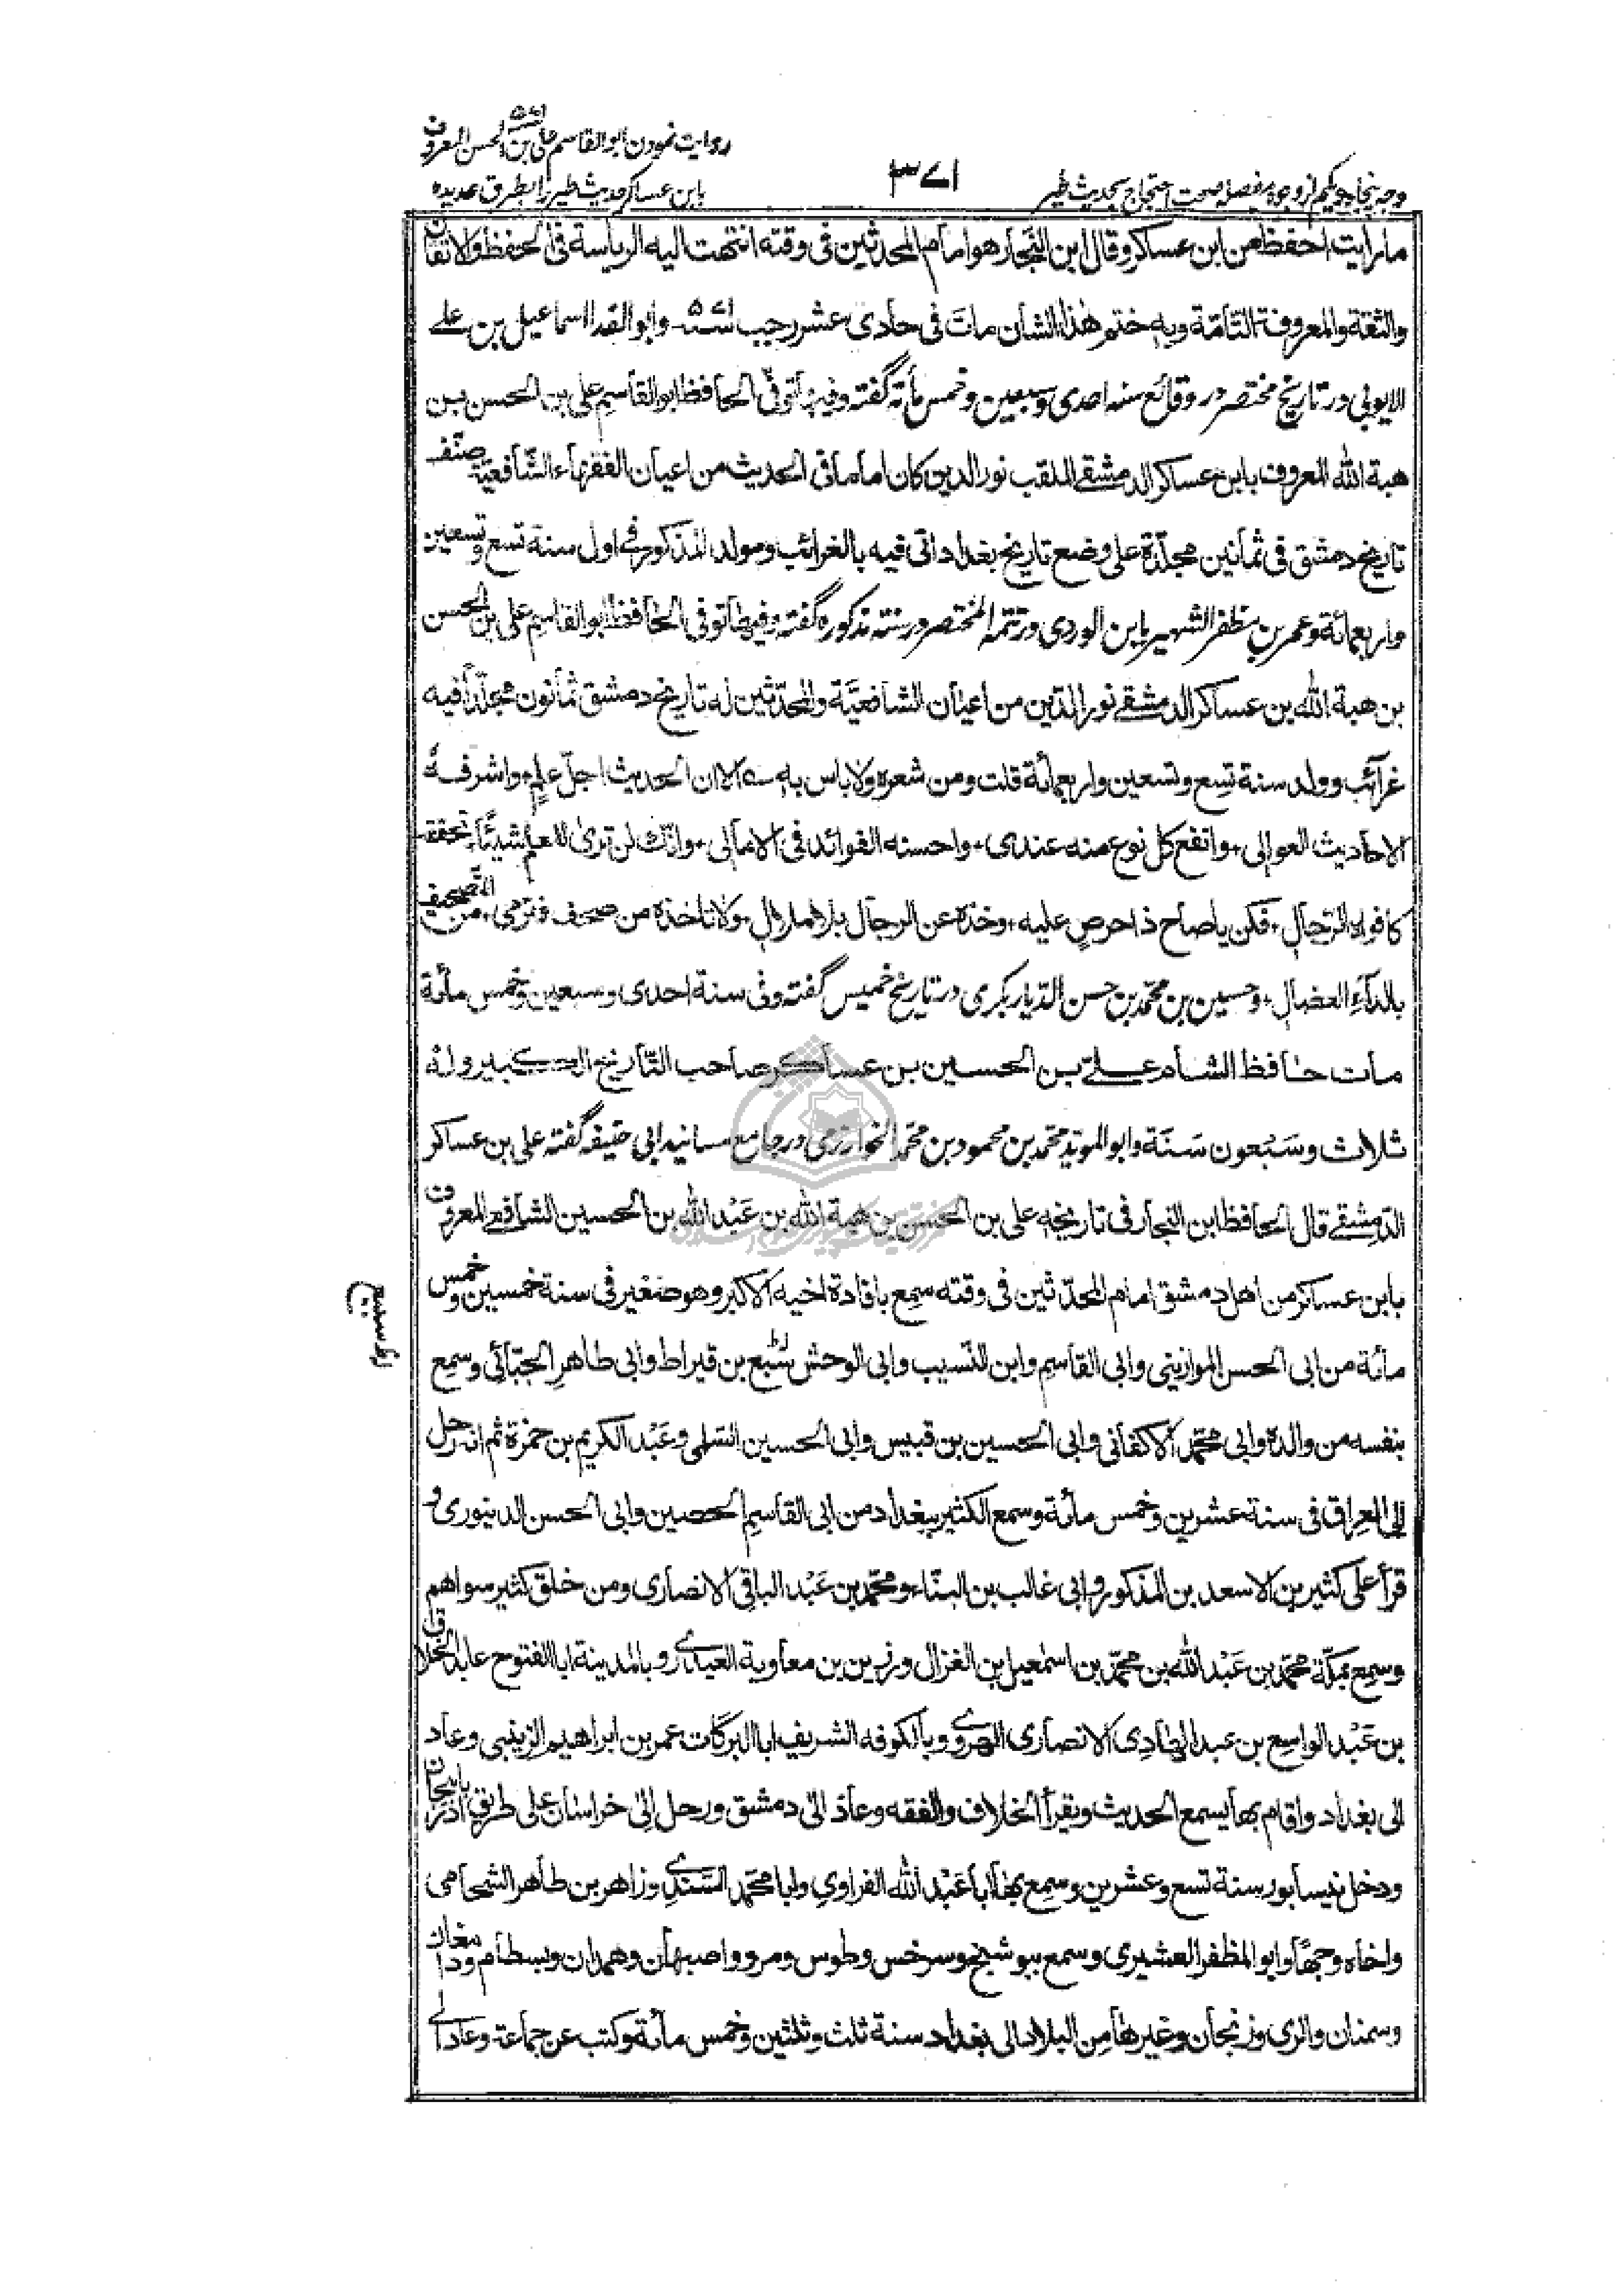 وجه پنجاه و یکم از وجوه مفصله صحت احتجاج بحدیث طیر
۳۷۱
روایت نمودن ابو القاسم علی بن الحسن المعروف
بابن عساکر حدیث طیر را بطرق عدیده
ما رایت احفظ من ابن عساکر وقال ابن النجار هو امام المحدثین فی وقته انتهت الیه الریاسة فی الحفظ والاتقان
والثقة والمعرفة التامّة وبه ختم هذا الشان مات فی حادی عشر رجب ۵۷۱ وابو الفدا اسماعیل بن علے
الایوبی در تاریخ مختصر در وقائع سنه احدی وسبعین وخمس مأته گفته وفیها توفّی الحافظ ابو القاسم علی بن الحسن بن
هبة الله المعروف بابن عساکر الدمشقے الملقب نور الدین کان اماما فی الحدیث من اعیان الفقهاء الشّافعیّة صنّف
تاریخ دمشق فی ثمانین مجلّدة علی وضع تاریخ بغداد اتی فیه بالغرائب ومولد المذکور فی اول سنة تسع وتسعین
واربعمائة وعمر بن مظفر الشهیر بابن الوردی در تتمة المختصر در سنه مذکوره گفته وفیها توفی الحافظ ابو القاسم علی بن الحسن
بن هبة الله بن عساکر الدمشقے نور الدّین من اعیان الشافعیّة والمحدّثین له تاریخ دمشق ثمانون مجلّداً فیه
غرآئب وولد سنة تسع وتسعین واربعمائة قلت ومن شعره ولا باس به ؎ الا ان الحدیث اجلّ علمٍ واشرفه
الاحادیث العوالی، وانفع کل نوع منه عندی، واحسنه الفوائد فی الامالی، وانّك لن تریٰ للعلم شیئًا، تحققه
کافواه الرّجال، فکن یا صاح ذا حرصٍ علیه، وخذه عن الرجال بلا ملال، ولا تاخذه من صحف فترمی، من التّصحیف
بالدآء العضال، وحسین بن محمّد بن حسن الدّیاربکری در تاریخ خمیس گفته وفی سنة احدی وسبعین وخمس مائة
مات حافظ الشام علی بن الحسین بن عساکر صاحب التّاریخ الکبیر وله
ثلاث وسَبْعون سَنَة وابو الموید محمّد بن محمود بن محمّد الخوارزمی در جامع مسانید ابی حنیفه گفته علی بن عساکر
الدّمشقے قال الحافظ ابن النجار فی تاریخه علی بن الحسن بن هبة الله بن عَبْد الله بن الحسین الشافعے المعروف
بابن عساکر من اهل دمشق امام المحدّثین فی وقته سمع بافادة اخیه الاکبر وهو صغیر فی سنة خمسین وخمس
مائة من ابی الحسن الموازینی وابی القاسم وابن النّسیب وابی الوحش سُبَیع بن قیراط وابی طاهر الجبّائی وسمع
بنفسه من والده وابی محمّد الاکفانی وابی الحسین بن قبیس وابی الحسین السّلمی وعَبْد الکریم بن حمزة ثم انه رحل
الی العراق فی سنة عشرین وخمس مائة وسمع الکثیر ببغداد من ابی القاسم الحصین وابی الحسن الدینوری و
قرأ علی کثیر بن الاسعد بن المذکور وابی غالب بن البنّاء ومحمّد بن عَبْد الباقی الانصاری ومن خلق کثیر سواهم
وسمع بمکّة محمّد بن عَبْد الله بن محمّد بن اسمعیل بن الغزال ورزین بن معاویة العبدری وبالمدینة ابا الفتوح عبد الخلاق
بن عَبْد الواسع بن عبد الهادی الانصاری الهروی وبالکوفه الشریف ابا البرکات عمر بن ابراهیم الزینبی وعاد
الی بغداد واقام بها یسمع الحدیث ویقرأ الخلاف والفقه وعاد الی دمشق ورحل الی خراسان علی طریق آذربایجان
ودخل نیسابور سنة تسع وعشرین وسمع بها ابا عَبْد الله الفراوی وابا محمّد السّندی وزاهر بن طاهر الشحامی
واخاه وجهًا وابو المظفر العشیری وسمع ببوشنج وسرخس وطوس ومرو واصبهان وهمدان وبسطام ودامغان
وسمنان والری وزنجان وغیرها من البلاد الی بغداد سنة ثلث وثلثین وخمس مائة وکتب عن جماعة وعاد الی